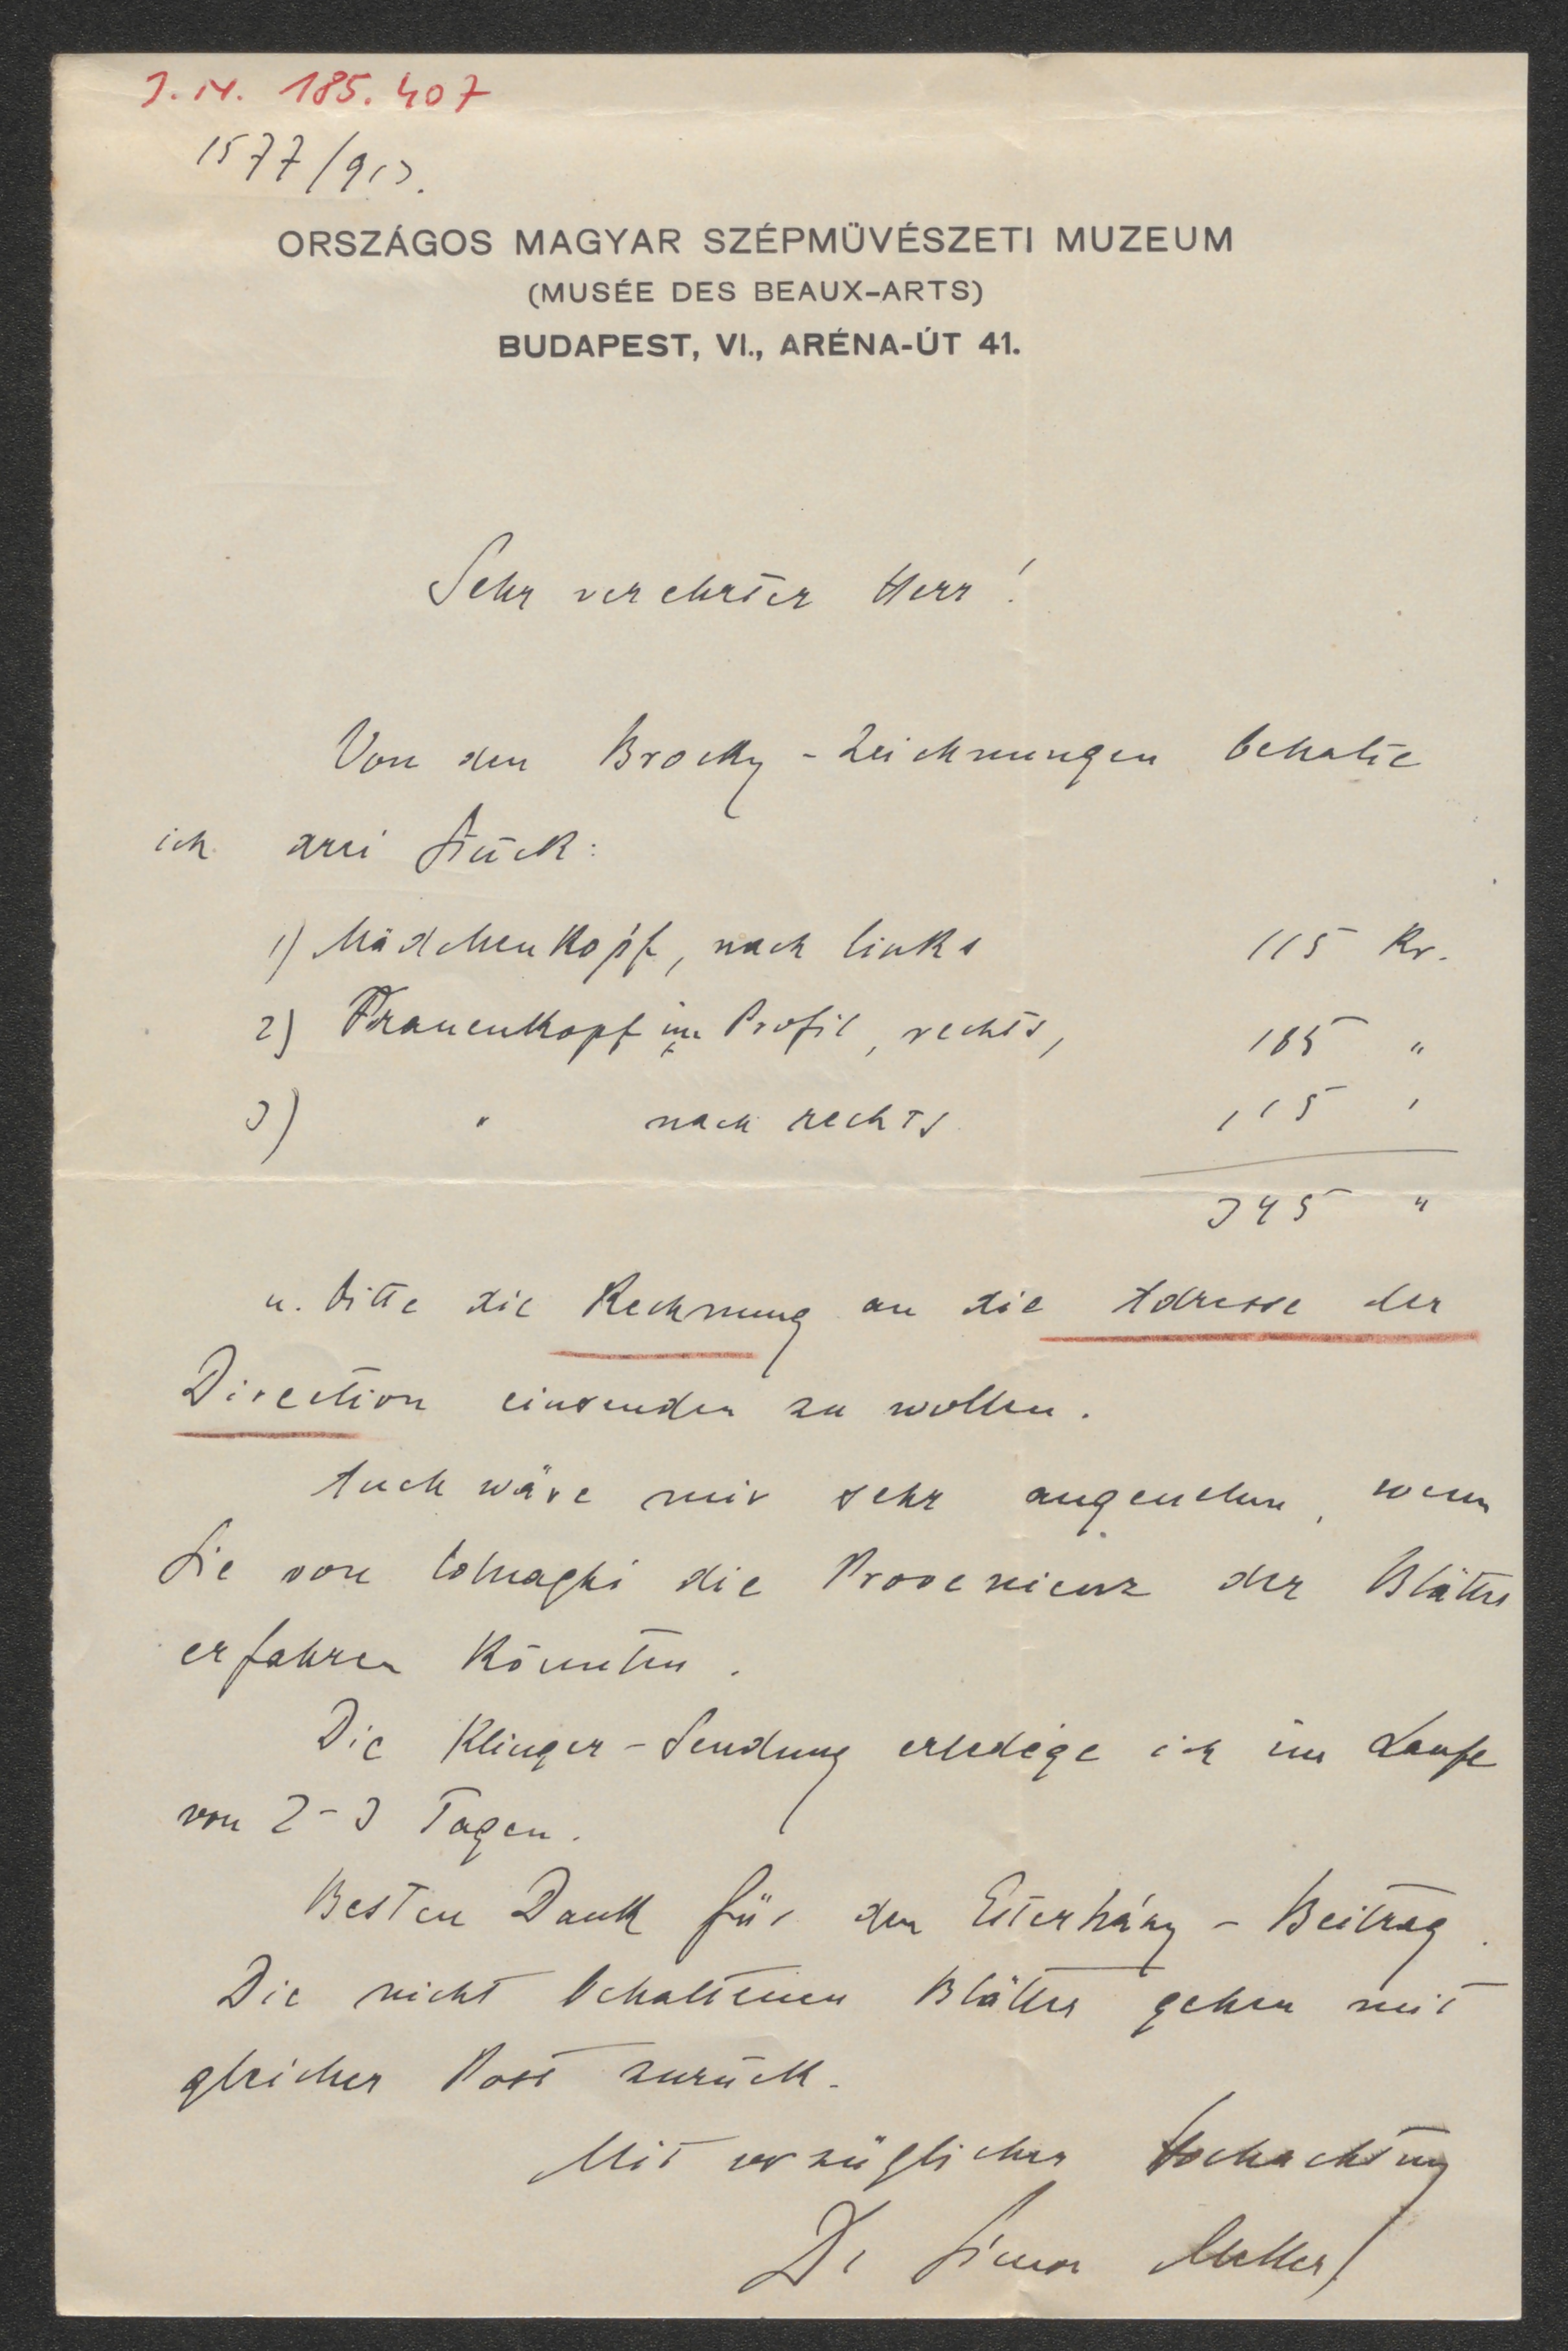 J.N. 185.407
1577/913.
ORSZÁGOS MAGYAR SZÉPMÜVÉSZETI MUZEUM
(MUSÉE DES BEAUX-ARTS)
BUDAPEST, VI., ARÉNA-ÚT 41.
Sehr verehrter Herr!
Von den Brocky-Zeichnungen behalte
ich drei Stück:
1) Mädchenkopf, nach links 115 Kr.
2) Frauenkopf im Profil, rechts, 115 "
3) " nach rechts 115 "
345 "
u. bitte die Rechnung an die Adresse der
Direction einsenden zu wollen.
Auch wäre mir sehr angenehm, wenn
Sie von Colnaghi die Provenienz der Blätter
erfahren könnten.
Die Klinger-Sendung erledige ich im Laufe
von 2-3 Tagen.
Besten Dank für den Esterházy-Beitrag.
Die nicht behaltenen Blätter gehen mit
gleicher Post zurück.
Mit vorzüglicher Hochachtung
Dr Simon Meller